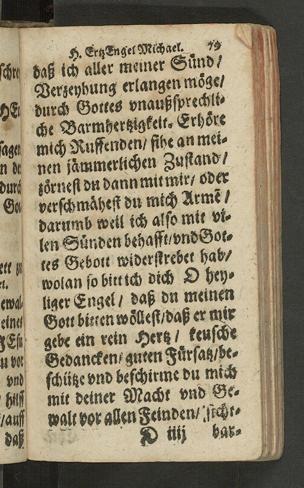 H. ErtzEngel Michael. 79
daß ich aller meiner Sünd/
Verzeyhung erlangen möge/
durch Gottes vnaußsprechli-
che Barmhertzigkeit. Erhöre
mich Ruffenden/ sihe an mei-
nen jämmerlichen Zustand/
zörnest du dann mit mir/ oder
verschmähest du mich Armē/
darumb weil ich also mit vi-
len Sünden behafft/ vnd Got-
tes Gebott widerstrebet hab/
wolan so bitt ich dich O hey-
liger Engel/ daß du meinen
Gott bitten wöllest/ daß er mir
gebe ein rein Hertz/ keusche
Gedancken/ guten Fürsatz/ be-
schütze vnd beschirme du mich
mit deiner Macht vnd Ge-
walt vor allen Feinden/ sicht-
D iiij bar-